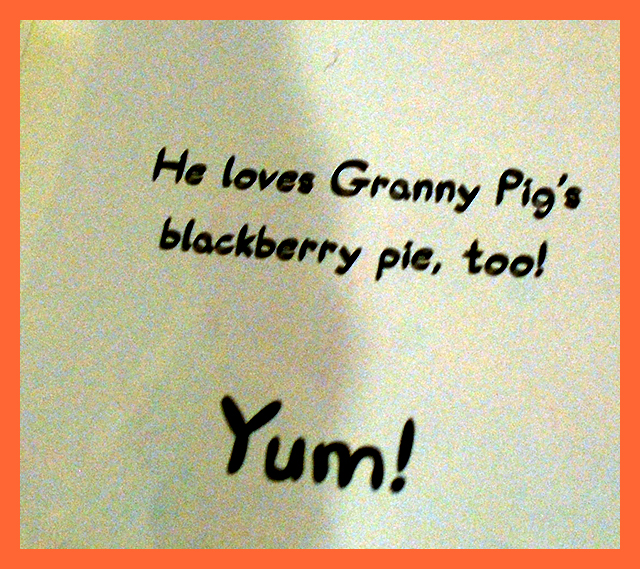 He loves Granny Pig's
blackberry pie, too!
Yum!